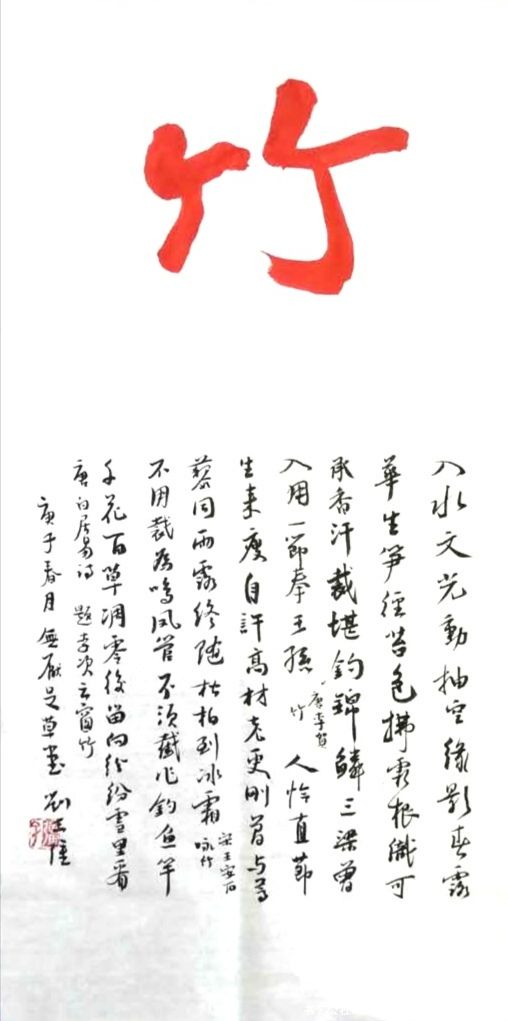 竹
入水文光動抽空緑影春露
華生笋徑苔色拂霜根織可
承香汗裁堪釣錦鱗三梁曾
入用一節奉王孫 唐李賀 竹 人怜直節
生来瘦自許高材老更剛曾与蒿
藜同雨露終随松柏到冰霜 宋王安石 咏竹
不用裁為鳴鳳管不須截作釣魚竿
千花百草凋零後留向紛紛雪里看
唐白居易诗 題李次云窗竹
庚子春月無厭足草堂 刘